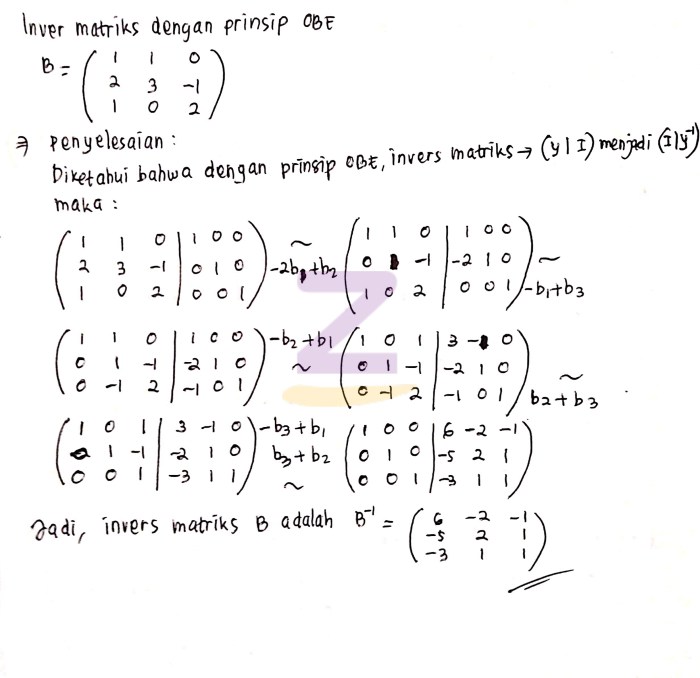 Inver matriks dengan prinsip OBE
B = ( 1 1 0
2 3 -1
1 0 2 )
⇒ Penyelesaian :
Diketahui bahwa dengan prinsip OBE, invers matriks → (y | I) menjadi (I|y⁻¹)
maka :
( 1 1 0 | 1 0 0 ) ~ ( 1 1 0 | 1 0 0 )
( 2 3 -1 | 0 1 0 ) -2b₁+b₂ ( 0 1 -1 | -2 1 0 ) ~
( 1 0 2 | 0 0 1 ) ( 1 0 2 | 0 0 1 ) -b₁+b₃
( 1 1 0 | 1 0 0 ) -b₂+b₁ ( 1 0 1 | 3 -1 0 )
( 0 1 -1 | -2 1 0 ) ~ ( 0 1 -1 | -2 1 0 ) ~
( 0 -1 2 | -1 0 1 ) ( 0 -1 2 | -1 0 1 ) b₂+b₃
( 1 0 1 | 3 -1 0 ) -b₃+b₁ ( 1 0 0 | 6 -2 -1 )
( 0 1 -1 | -2 1 0 ) b₃+b₂ ( 0 1 0 | -5 2 1 )
( 0 0 1 | -3 1 1 ) ~ ( 0 0 1 | -3 1 1 )
Jadi, invers matriks B adalah B⁻¹ = ( 6 -2 -1
-5 2 1
-3 1 1 )
Z